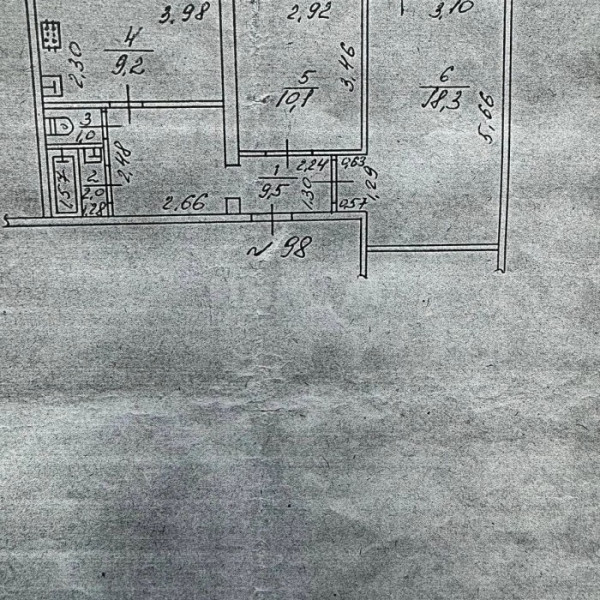 3,98
2,92
3,10
4
9,2
2,30
5
10,1
3,46
6
18,3
5,66
3
1,0
2,48
2
2,0
1,28
1,57
1
9,5
2,24
0,63
1,30
1,29
0,57
2,66
№ 98